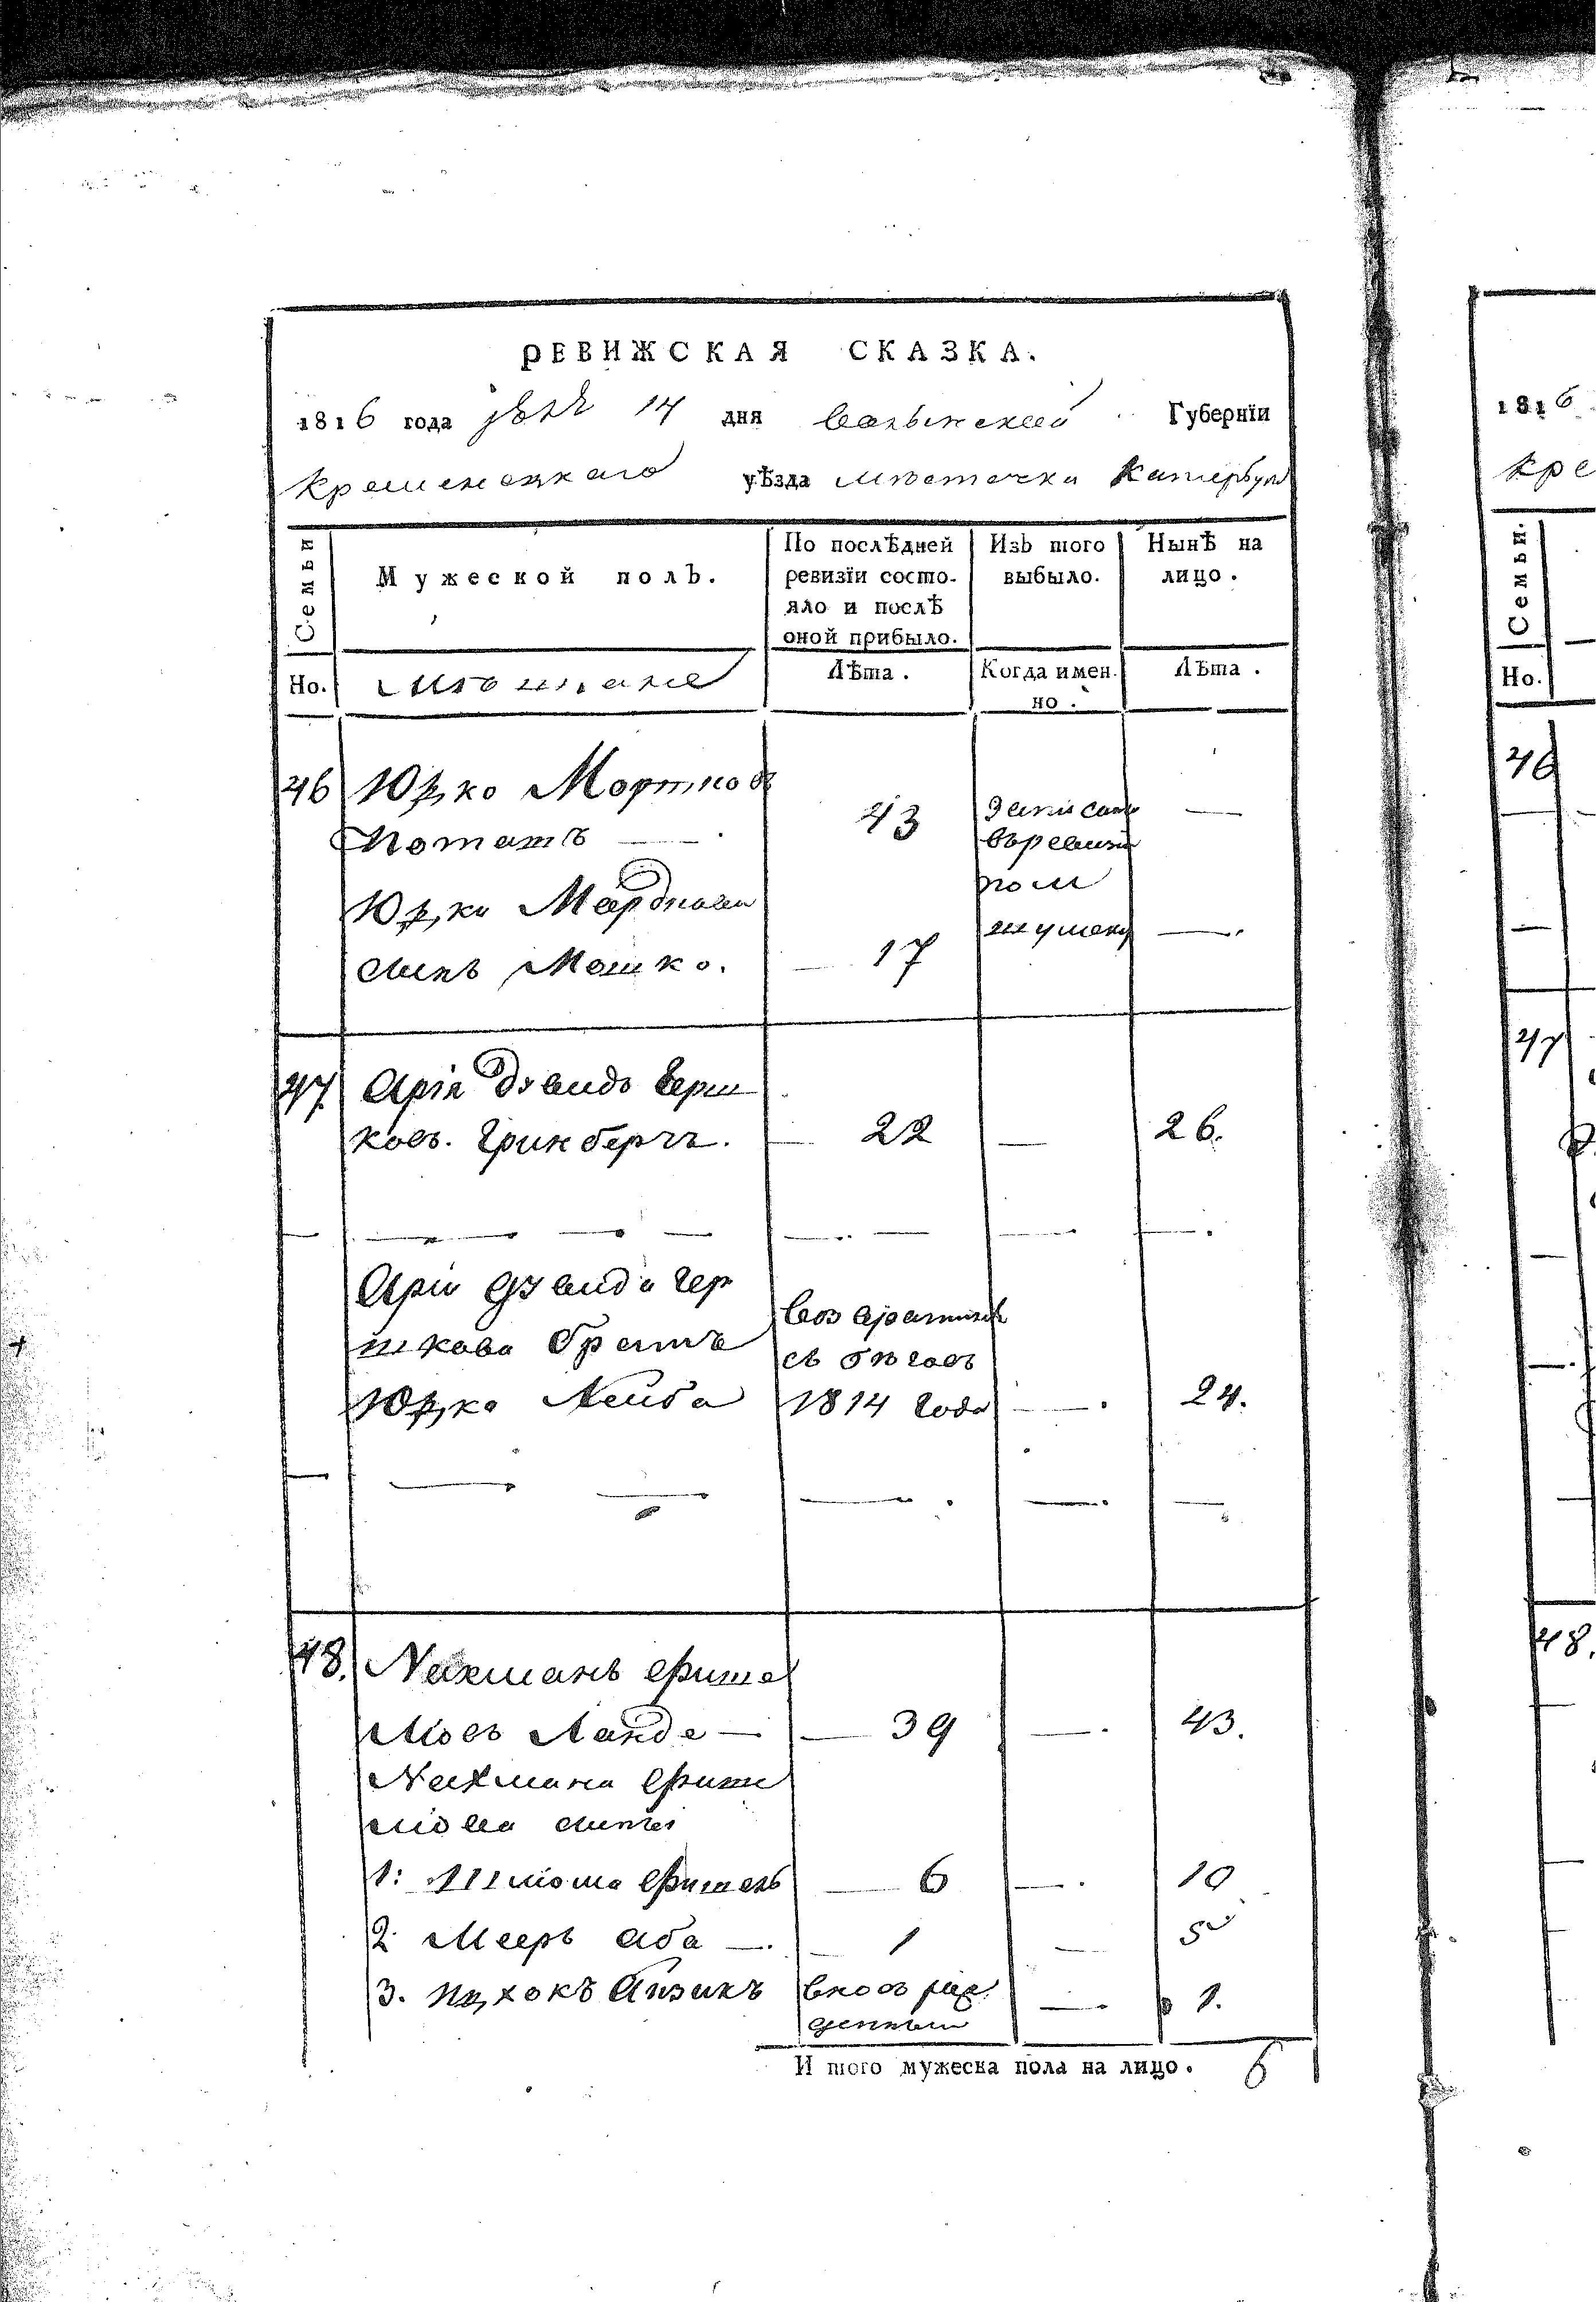 РЕВИЖСКАЯ СКАЗКА.
1816 года 14 дня Волынской Губернїи
Кременецкаго уѣзда мѣстечка Катербург
Семьи
Мужеской полъ.
По послѣдней ревизїи состо-
яло и послѣ
оной прибыло.
Изъ того
выбыло.
Нынѣ на
лицо.
Но.
Мѣщане
Лѣта.
Когда имен-
но.
Лѣта.
46 Юцко Мортков
Поташъ 43 Записанъ —
въревизи
Юцка Мордкови
сынъ Мошко. 17 —
47. Арія Дзвидъ Герш
ковъ. Гринбергъ. — 22 — 26.
Арія Дзвида Гер
шкова братъ Возвратился
съ бѣговъ
Юцко Лейба 1814 Года — 24.
48. Нахманъ Фише
лювъ Ланде — — 39 — 43.
Нахмана Фише
люва сыны
1: Шлюма Фишель — 6 — 10
2 Мееръ Аба — 1 — 5
3. Ицхокъ Айзикъ вновъ рож
денный — 1.
И того мужеска пола на лицо. 6
1816
Кре
Семьи.
Но.
46
47
48.